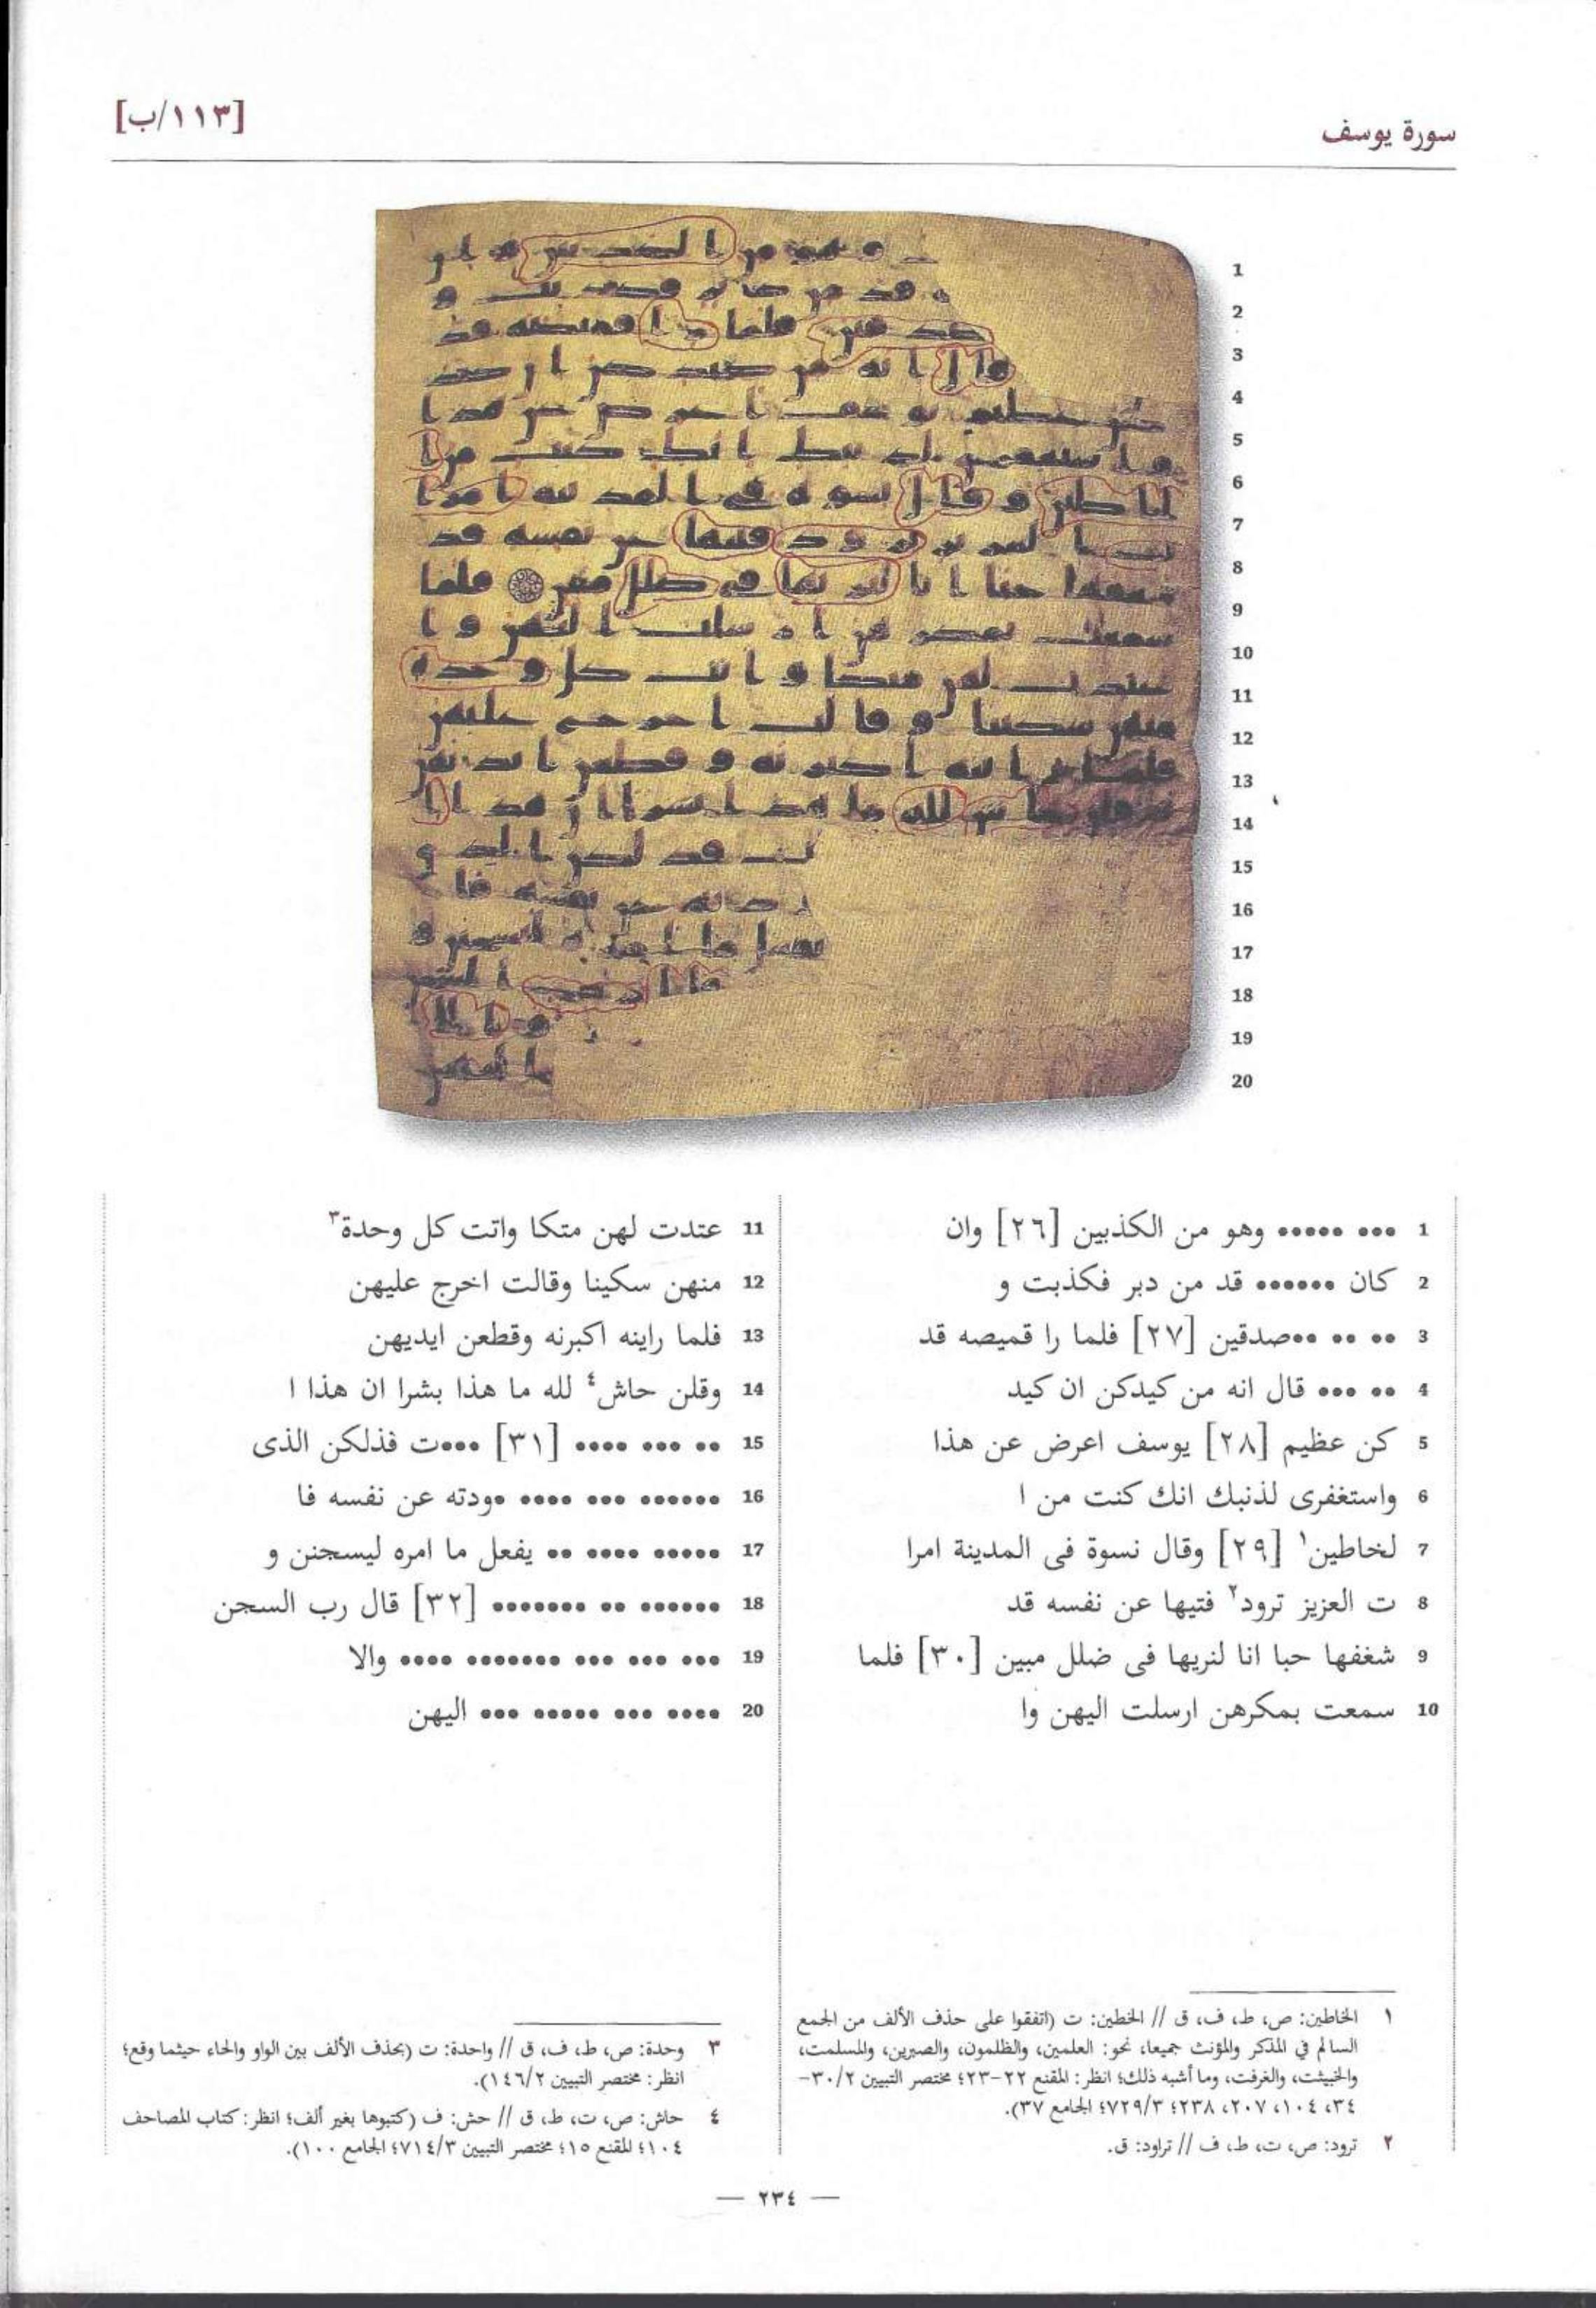 سورة يوسف
[١١٣/ب]
1 ••• ••••• وهو من الكذبين [٢٦] وان
2 كان •••••• قد من دبر فكذبت و
3 •• •• ••صدقين [٢٧] فلما را قميصه قد
4 •• ••• قال انه من كيدكن ان كيد
5 كن عظيم [٢٨] يوسف اعرض عن هذا
6 واستغفرى لذنبك انك كنت من ا
7 لخاطين١ [٢٩] وقال نسوة فى المدينة امرا
8 ت العزيز ترود٢ فتيها عن نفسه قد
9 شغفها حبا انا لنريها فى ضلل مبين [٣٠] فلما
10 سمعت بمكرهن ارسلت اليهن وا
11 عتدت لهن متكا واتت كل وحدة٣
12 منهن سكينا وقالت اخرج عليهن
13 فلما راينه اكبرنه وقطعن ايديهن
14 وقلن حاش٤ لله ما هذا بشرا ان هذا ا
15 •• ••• •••• [٣١] •••ت فذلكن الذى
16 •••••• ••• •••• •ودته عن نفسه فا
17 ••••• •••• •• يفعل ما امره ليسجنن و
18 •••••• •• ••••••• [٣٢] قال رب السجن
19 ••• ••• ••• ••••••• •••• والا
20 •••• ••• ••••• ••• اليهن
١ الخاطين: ص، ط، ف، ق // الخطين: ت (اتفقوا على حذف الألف من الجمع
السالم في المذكر والمؤنث جميعا، نحو: العلمين، والظلمون، والصبرين، والمسلمت،
والخبيثت، والغرفت، وما أشبه ذلك؛ انظر: المقنع ٢٢-٢٣؛ مختصر التبيين ٣٠/٢-
٣٤، ١٠٤، ٢٠٧، ٢٣٨؛ ٧٢٩/٣؛ الجامع ٣٧).
٢ ترود: ص، ت، ط، ف // تراود: ق.
٣ وحدة: ص، ط، ف، ق // واحدة: ت (بحذف الألف بين الواو والحاء حيثما وقع؛
انظر: مختصر التبيين ١٤٦/٢).
٤ حاش: ص، ت، ط، ق // حش: ف (كتبوها بغير ألف؛ انظر: كتاب المصاحف
١٠٤؛ المقنع ١٥؛ مختصر التبيين ٧١٤/٣؛ الجامع ١٠٠).
— ٢٣٤ —